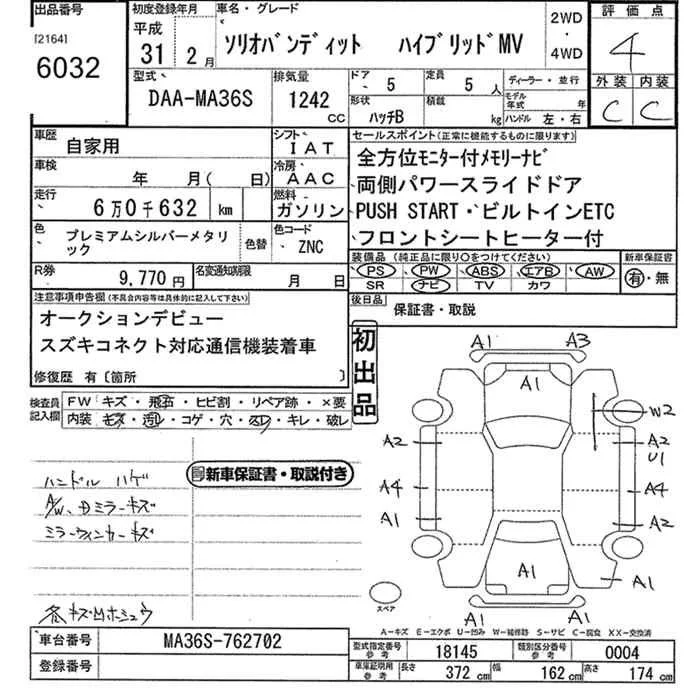 出品番号
[2164]
6032
初度登録年月
平成
31年 2月
車名・グレード
ソリオバンディット ハイブリッドMV
2WD
・
4WD
評価点
4
外装 内装
C C
型式
DAA-MA36S
排気量
1242
CC
ドア 5
定員 5 人
形状 ハッチB
積載 kg
ディーラー・並行
モデル年式 年
ハンドル 左・右
車歴 自家用
シフト IAT
車検 年 月( 日)
冷房 AAC
走行 6万0千632 km
燃料 ガソリン
色 プレミアムシルバーメタリック
色替
色コード ZNC
R券 9,770円
名変通知期限 月 日
セールスポイント(正常に機能するものに限ります)
全方位モニター付メモリーナビ
両側パワースライドドア
PUSH START・ビルトインETC
フロントシートヒーター付
装備品 (純正品に限り○をつけてください)
PS PW ABS エアB AW
SR ナビ TV カワ
新車保証書
有・無
後日品 保証書・取説
注意事項申告欄(不具合内容等は具体的に記入して下さい)
オークションデビュー
スズキコネクト対応通信機装着車
修復歴 有〔箇所 〕
初出品
検査員記入欄
FW キズ・飛石・ヒビ割・リペア跡・×要
内装 キズ・汚レ・コゲ・穴・スレ・キレ・破レ
新車保証書・取説付き
ハンドル ハゲ
A/W、Dミラーキズ
ミラーウィンカーキズ
各キズ凹ホシュウ
A1 A3
A1
W2
A2 A2
U1
A4 A4
A1 A2
A1 A1
A1 A1
スペア
A-キズ E-エクボ U-凹み W-補修跡 S-サビ C-腐食 XX-交換済
車台番号 MA36S-762702
登録番号
型式指定番号 参考 18145
類別区分番号 参考 0004
車庫証明用 参考 長さ 372 cm 幅 162 cm 高さ 174 cm